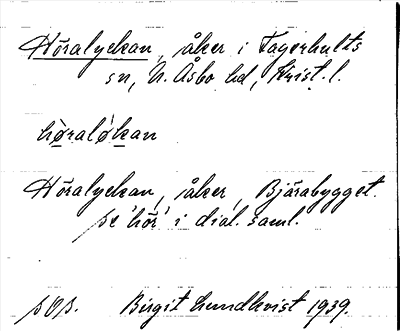 Höralyckan, åker i Fagerhults
sn, N. Åsbo hd, Krist. l.
hö̀ralø̀kan
Höralyckan, åker, Bjärabygget.
se 'hör' i dial. saml.
sOs. Birgit Lundkvist 1939.